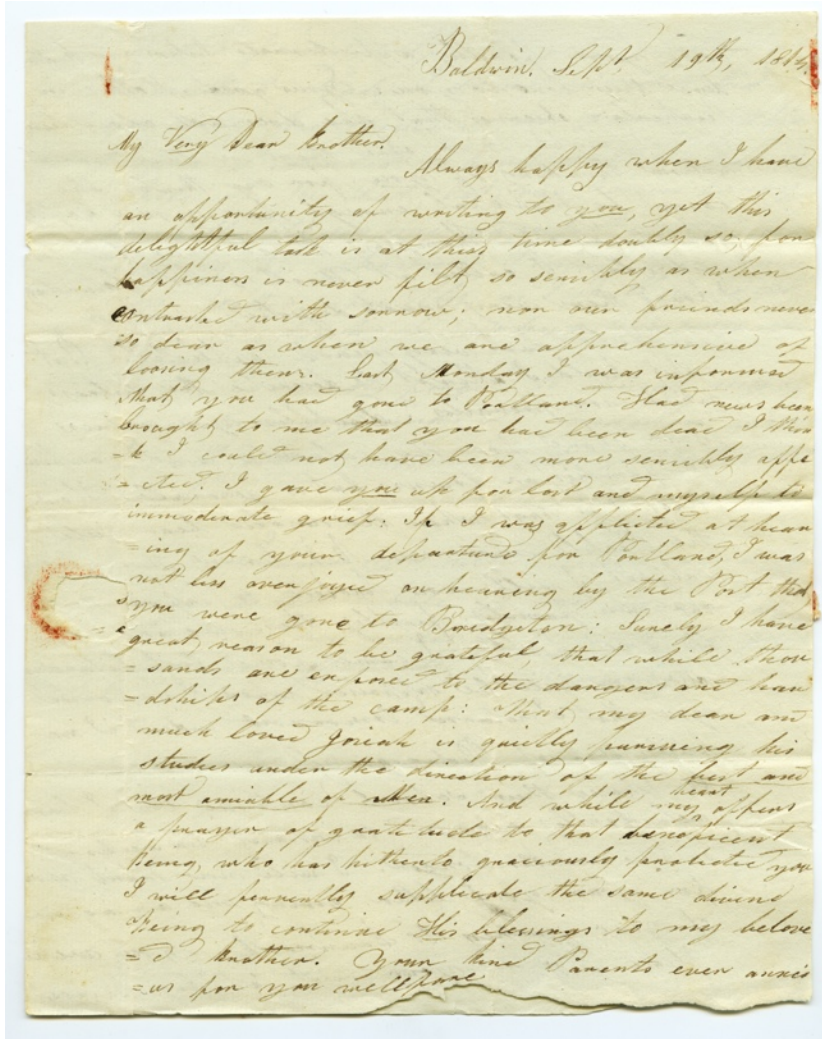 Baldwin. Sept. 19th, 1814.
My Very Dear Brother.
Always happy when I have
an opportunity of writing to you, yet this
delightful task is at this time doubly so, for
happiness is never felt so sensibly as when
contrasted with sorrow; nor our friends never
so dear as when we are apprehensive of
loosing them. Last Monday I was informed
that you had gone to Portland. Had news been
brought to me that you had been dead I thin
=k I could not have been more sensibly affe
=cted. I gave you up for lost and myself to
immoderate grief. If I was afflicted at hear
=ing of your departure for Portland, I was
not less overjoyed on hearing by the Post that
you were gone to Bridgeton: Surely I have
great reason to be grateful, that while thou
=sands are exposed to the dangers and har
=dships of the camp: that my dear and
much loved Josiah is quietly pursuing his
studies under the direction of the best and
most amiable of Men. And while my heart offers
a prayer of gratitude to that beneficent
Being, who has hitherto graciously protected you
I will fervently supplicate the same divine
Being to continue His blessings to my belove
=d Brother. Your kind Parents ever anxio
=us for you wellfare